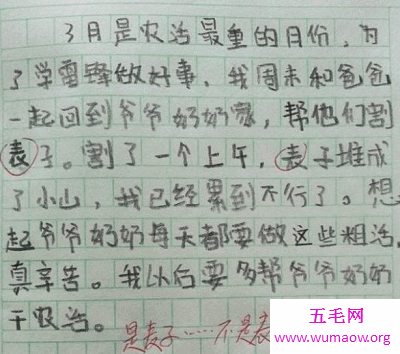 3月是农活最重的月份，为
了学雷锋做好事，我周末和爸爸
一起回到爷爷奶奶家，帮他们割
表子。割了一个上午，表子堆成
了小山，我已经累到不行了。想
起爷爷奶奶每天都要做这些粗活，
真辛苦。我以后要多帮爷爷奶奶
干农活。
是麦子……不是表
五毛网
www.wumaow.org